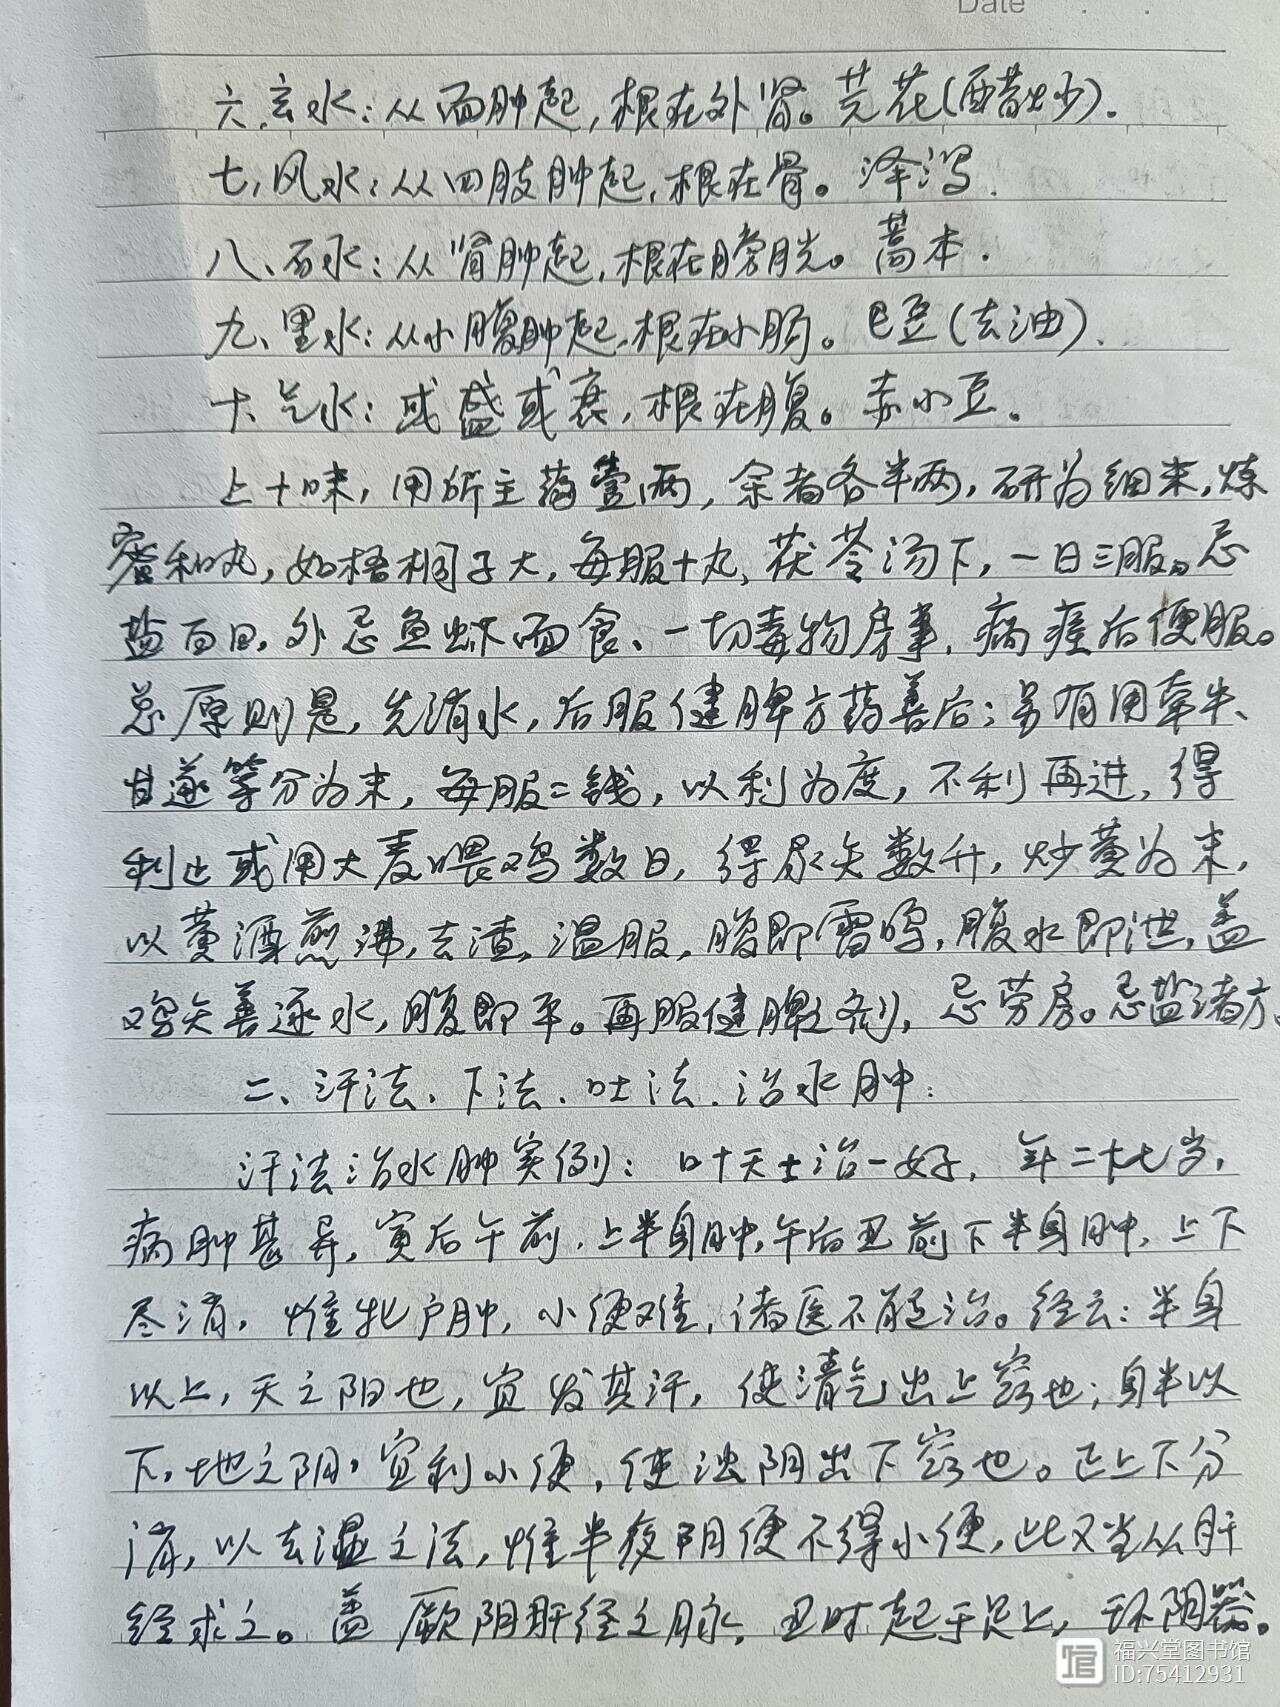 Date
六、玄水：从面肿起，根在外肾。芫花（醋炒）.
七、风水：从四肢肿起，根在骨。泽泻.
八、石水：从肾肿起，根在膀胱。藁本.
九、里水：从小腹肿起，根在小肠。巴豆（去油）.
十、气水：或盛或衰，根在腹。赤小豆。
上十味，用所主药壹两，余者各半两，研为细末，炼
蜜和丸，如梧桐子大，每服十丸，茯苓汤下，一日三服。忌
盐百日，外忌鱼虾面食、一切毒物房事，病痊后便服。
总原则是，先消水，后服健脾方药善后；另有用牵牛、
甘遂等分为末，每服二钱，以利为度，不利再进，得
利止或用大麦喂鸡数日，得尿矢数升，炒黄为末，
以黄酒煎沸，去渣，温服，腹即雷鸣，腹水即泄，盖
鸡矢善逐水，腹即平。再服健脾之剂，忌劳房。忌盐诸方。
二、汗法、下法、吐法、治水肿：
汗法治水肿实例：叶天士治一好，年二十七岁，
病肿甚异，寅后午前，上半身肿，午后丑前下半身肿，上下
尽消，惟牝户肿，小便难，诸医不能治。经云：半身
以上，天之阳也，宜发其汗，使清气出上窍也；身半以
下，地之阴，宜利小便，使浊阴出下窍也。正上下分
消，以去湿之法，惟半夜阴便不得小便，此又当从肝
经求之。盖厥阴肝经之脉，丑时起于足上，环阴器。
福兴堂图书馆
ID:75412931